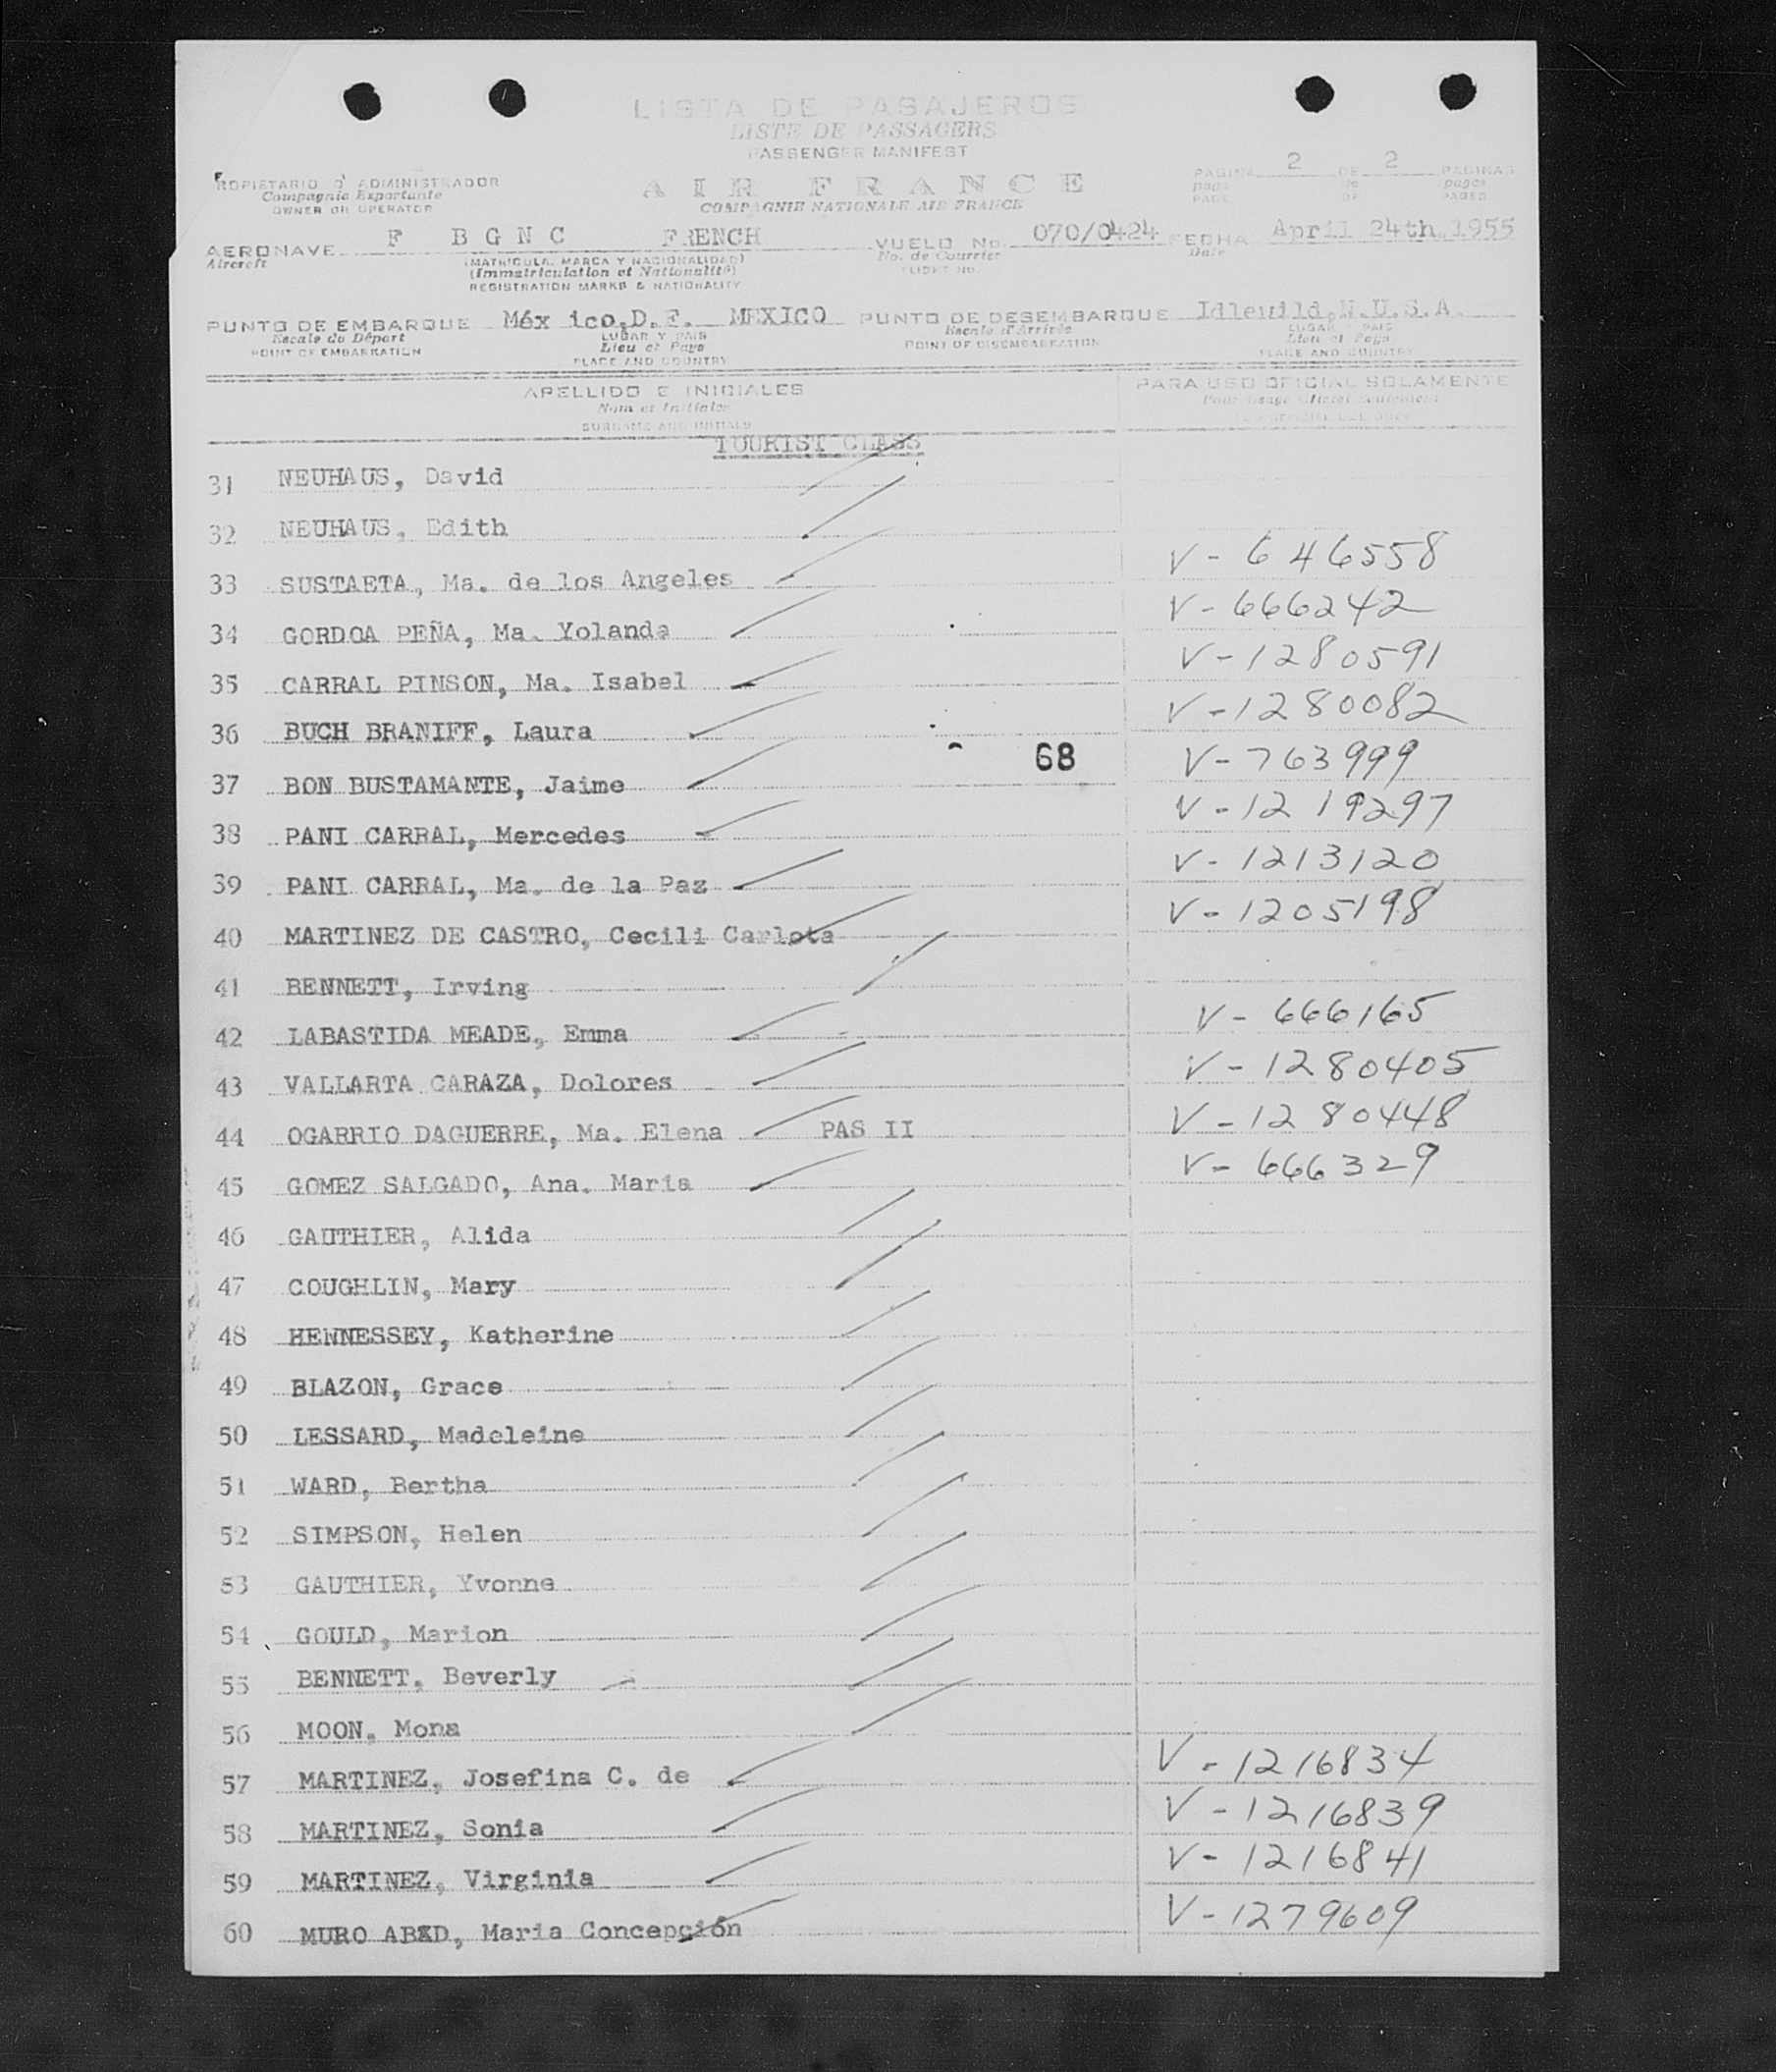 LISTA DE PASAJEROS
LISTE DE PASSAGERS
PASSENGER MANIFEST
PROPIETARIO O ADMINISTRADOR
Compagnie Exportante
OWNER OR OPERATOR
AIR FRANCE
COMPAGNIE NATIONALE AIR FRANCE
PAGINA 2 DE 2 PAGINAS
page de pages
PAGE OF PAGES
AERONAVE F BGNC FRENCH VUELO No. 070/0424 FECHA April 24th, 1955
Aircraft (MATRICULA, MARCA Y NACIONALIDAD) No. de Courrier Date
(Immatriculation et Nationalité) FLIGHT NO.
REGISTRATION MARKS & NATIONALITY
PUNTO DE EMBARQUE Méx ico,D.F. MEXICO PUNTO DE DESEMBARQUE Idlewild,N.U.S.A.
Escale du Départ LUGAR Y PAIS Escale d'Arrivée LUGAR PAIS
POINT OF EMBARKATION Lieu et Pays POINT OF DISEMBARKATION Lieu et Pays
PLACE AND COUNTRY PLACE AND COUNTRY
APELLIDO E INICIALES PARA USO OFICIAL SOLAMENTE
Nom et Initiales Pour usage officiel seulement
SURNAME AND INITIALS
TOURIST CLASS
31 NEUHAUS, David
32 NEUHAUS, Edith
33 SUSTAETA, Ma. de los Angeles V-646558
34 GORDOA PEÑA, Ma. Yolanda V-666242
35 CARRAL PINSON, Ma. Isabel V-1280591
36 BUCH BRANIFF, Laura V-1280082
37 BON BUSTAMANTE, Jaime 68 V-763999
38 PANI CARRAL, Mercedes V-1219297
39 PANI CARRAL, Ma. de la Paz V-1213120
40 MARTINEZ DE CASTRO, Cecili Carlota V-1205198
41 BENNETT, Irving
42 LABASTIDA MEADE, Emma V-666165
43 VALLARTA CARAZA, Dolores V-1280405
44 OGARRIO DAGUERRE, Ma. Elena PAS II V-1280448
45 GOMEZ SALGADO, Ana. Maria V-666329
46 GAUTHIER, Alida
47 COUGHLIN, Mary
48 HENNESSEY, Katherine
49 BLAZON, Grace
50 LESSARD, Madeleine
51 WARD, Bertha
52 SIMPSON, Helen
53 GAUTHIER, Yvonne
54 GOULD, Marion
55 BENNETT, Beverly
56 MOON, Mona
57 MARTINEZ, Josefina C. de V-1216834
58 MARTINEZ, Sonia V-1216839
59 MARTINEZ, Virginia V-1216841
60 MURO ABXD, Maria Concepción V-1279609